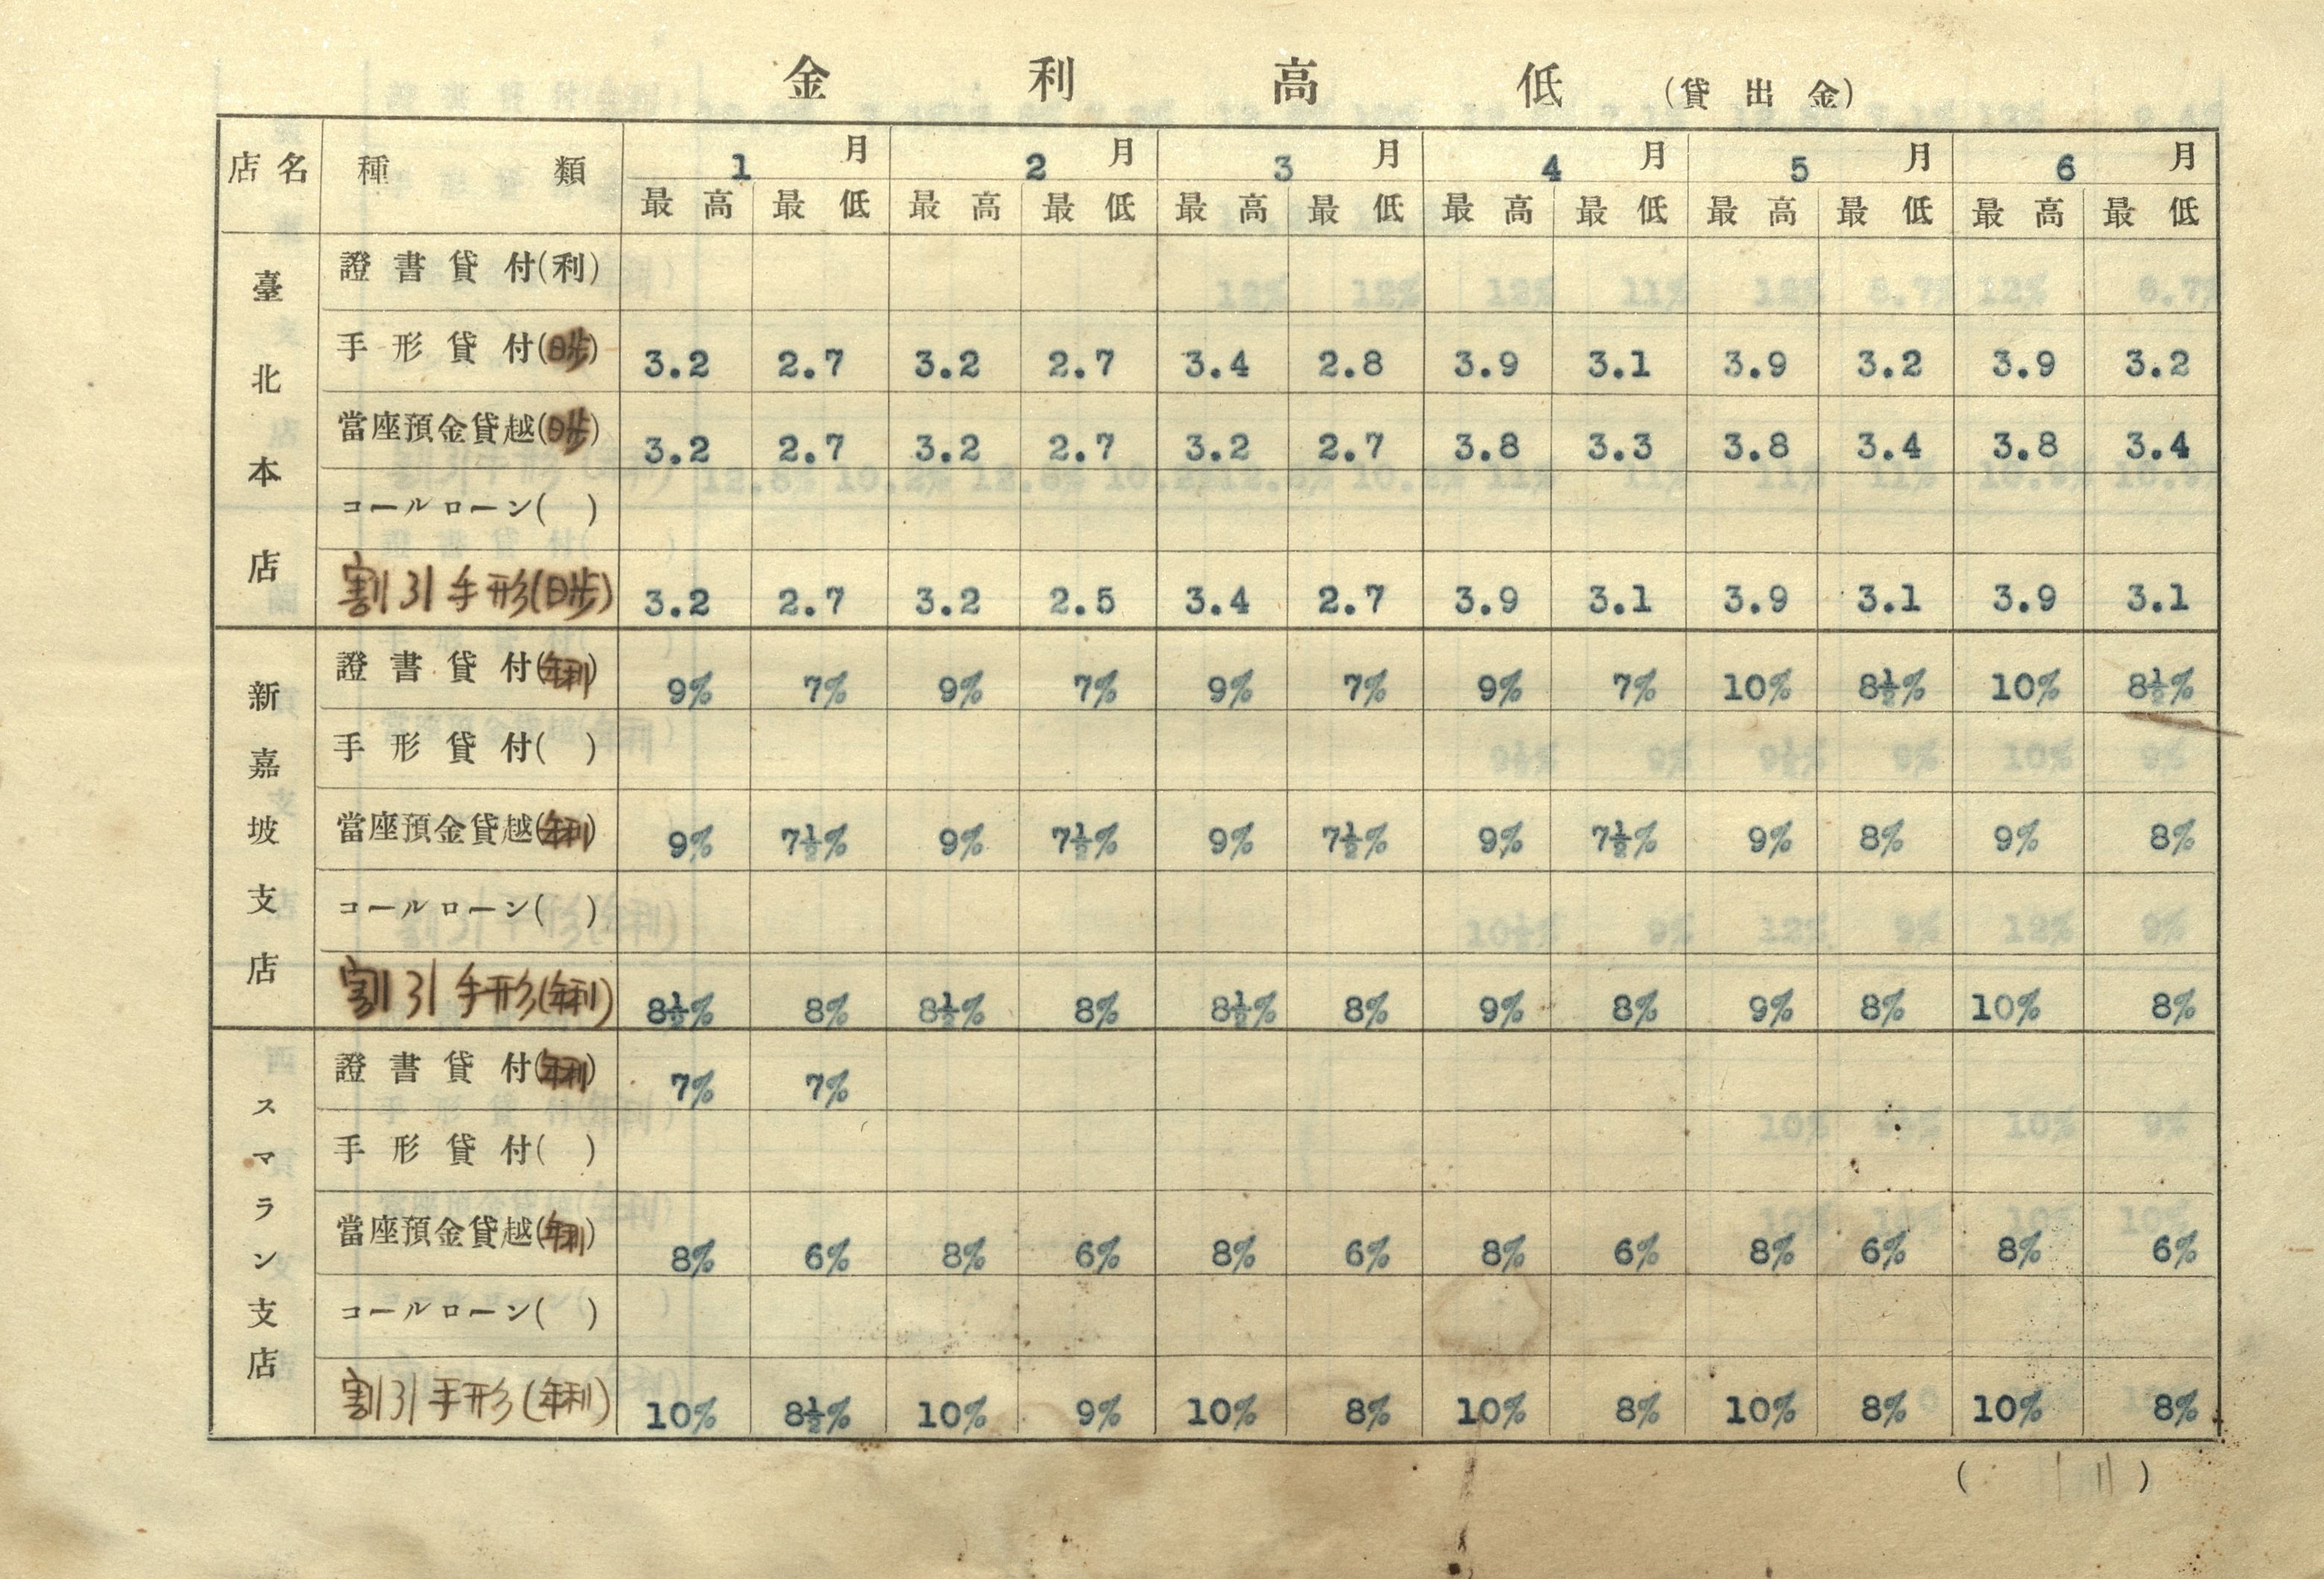 金利高低 (貸出金)
店名 種類 1月 2月 3月 4月 5月 6月
最高 最低 最高 最低 最高 最低 最高 最低 最高 最低 最高 最低
臺北本店
證書貸付(利)
手形貸付(日歩) 3.2 2.7 3.2 2.7 3.4 2.8 3.9 3.1 3.9 3.2 3.9 3.2
當座預金貸越(日歩) 3.2 2.7 3.2 2.7 3.2 2.7 3.8 3.3 3.8 3.4 3.8 3.4
コールローン( )
割引手形(日歩) 3.2 2.7 3.2 2.5 3.4 2.7 3.9 3.1 3.9 3.1 3.9 3.1
新嘉坡支店
證書貸付(年利) 9% 7% 9% 7% 9% 7% 9% 7% 10% 8½% 10% 8½%
手形貸付( )
當座預金貸越(年利) 9% 7½% 9% 7½% 9% 7½% 9% 7½% 9% 8% 9% 8%
コールローン( )
割引手形(年利) 8½% 8% 8½% 8% 8½% 8% 9% 8% 9% 8% 10% 8%
スマラン支店
證書貸付(年利) 7% 7%
手形貸付( )
當座預金貸越(年利) 8% 6% 8% 6% 8% 6% 8% 6% 8% 6% 8% 6%
コールローン( )
割引手形(年利) 10% 8½% 10% 9% 10% 8% 10% 8% 10% 8% 10% 8%